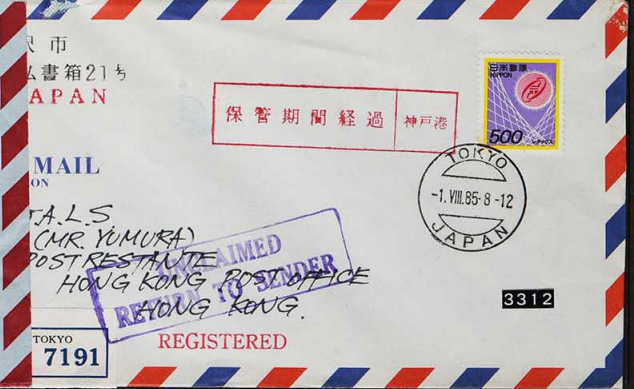 沢市
書箱21号
APAN
保管期間経過 神戸港
日本郵便
NIPPON
500
TOKYO
-1.VIII.85·8-12
JAPAN
MAIL
ON
T.A.L.S
(MR. YUMURA)
POST RESTANTE
HONG KONG POST OFFICE
HONG KONG.
UNCLAIMED
RETURN TO SENDER
3312
TOKYO
7191
REGISTERED